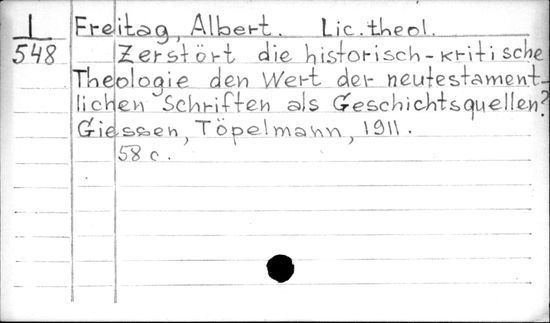 I Freitag, Albert. Lic. theol.
548 Zerstört die historisch-kritische
Theologie den Wert der neutestament-
lichen Schriften als Geschichtsquellen?
Giessen, Töpelmann, 1911.
58 c.